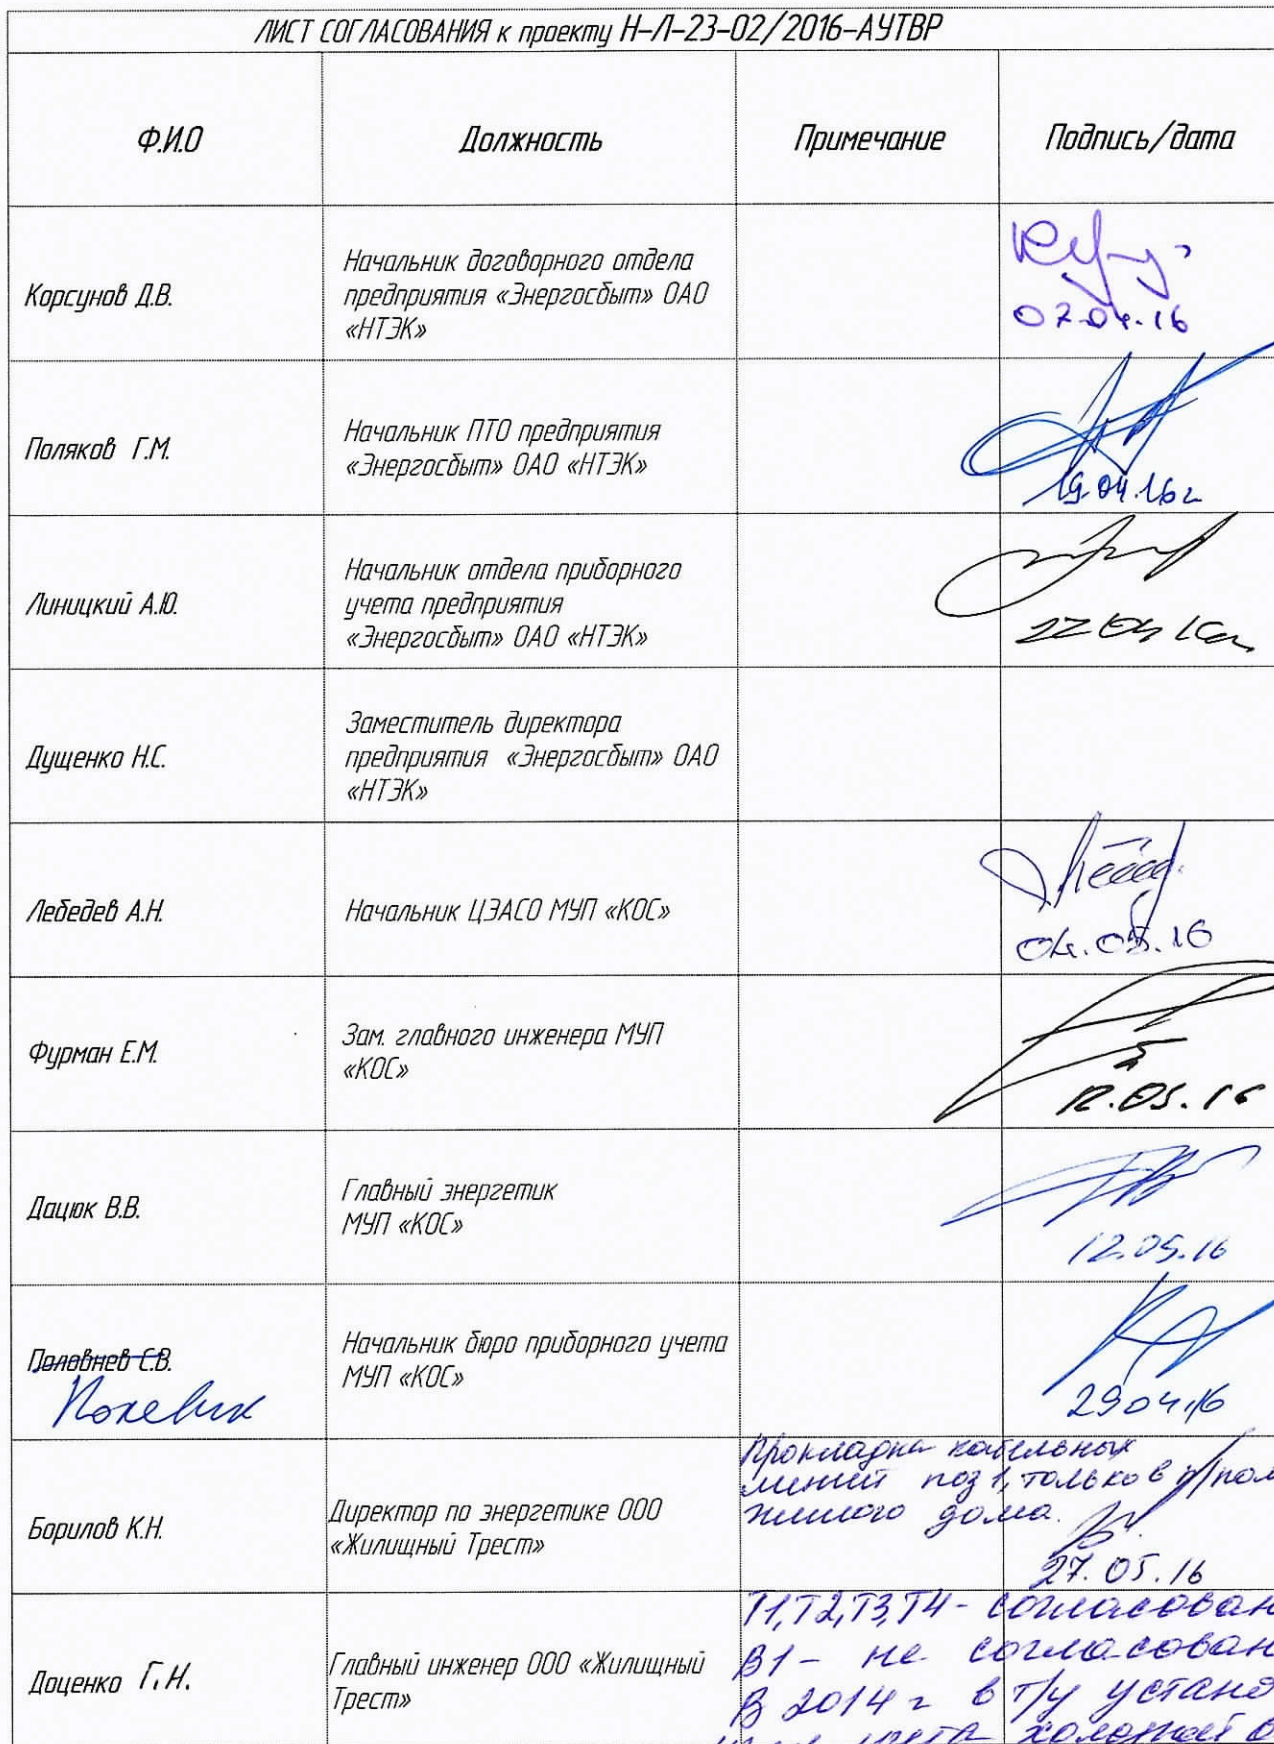 ЛИСТ СОГЛАСОВАНИЯ к проекту Н-Л-23-02/2016-АУТВР
Ф.И.О Должность Примечание Подпись/дата
Корсунов Д.В.
Начальник договорного отдела
предприятия «Энергосбыт» ОАО
«НТЭК»
07.04.16
Поляков Г.М.
Начальник ПТО предприятия
«Энергосбыт» ОАО «НТЭК»
19.04.16г
Линицкий А.Ю.
Начальник отдела приборного
учета предприятия
«Энергосбыт» ОАО «НТЭК»
Дущенко Н.С.
Заместитель директора
предприятия «Энергосбыт» ОАО
«НТЭК»
Лебедев А.Н.
Начальник ЦЭАСО МУП «КОС»
04.05.16
Фурман Е.М.
Зам. главного инженера МУП
«КОС»
12.05.16
Дацюк В.В.
Главный энергетик
МУП «КОС»
12.05.16
Половнев С.В.
Начальник бюро приборного учета
МУП «КОС»
29.04.16
Борилов К.Н.
Директор по энергетике ООО
«Жилищный Трест»
Прокладка кабельных
линий поз 1, только в т/пом
жилого дома.
27.05.16
Доценко Г.Н.
Главный инженер ООО «Жилищный
Трест»
Т1,Т2,Т3,Т4 - согласован
В1 - не согласован
В 2014 г в т/у устано